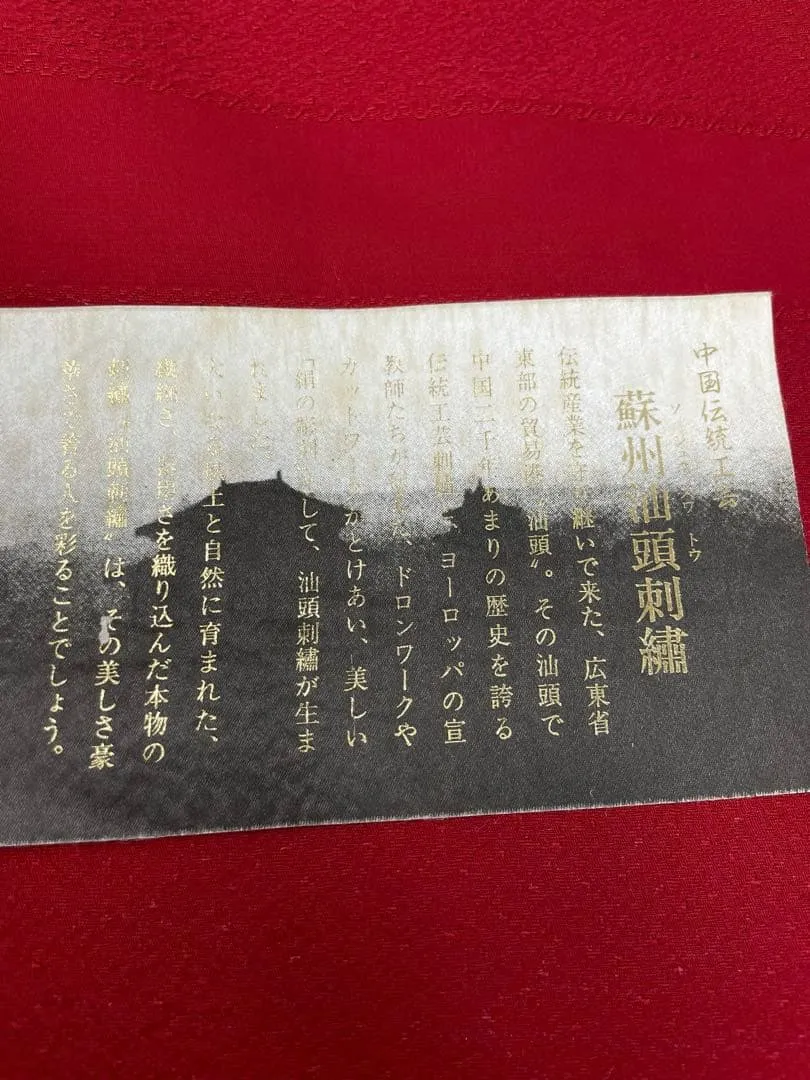 中国伝統工芸
蘇州汕頭刺繡
ソ シュウ スワ トウ
伝統産業を守り継いで来た、広東省
東部の貿易港〝汕頭〟。その汕頭で
中国二千年あまりの歴史を誇る
伝統工芸刺繡と、ヨーロッパの宣
教師たちが伝えた、ドロンワークや
カットワークがとけあい、美しい
「絹の彫刻」として、汕頭刺繡が生ま
れました。
土と自然に育まれた、
さを織り込んだ本物の
汕頭刺繡〟は、その美しさ豪
華さで着る人を彩ることでしょう。